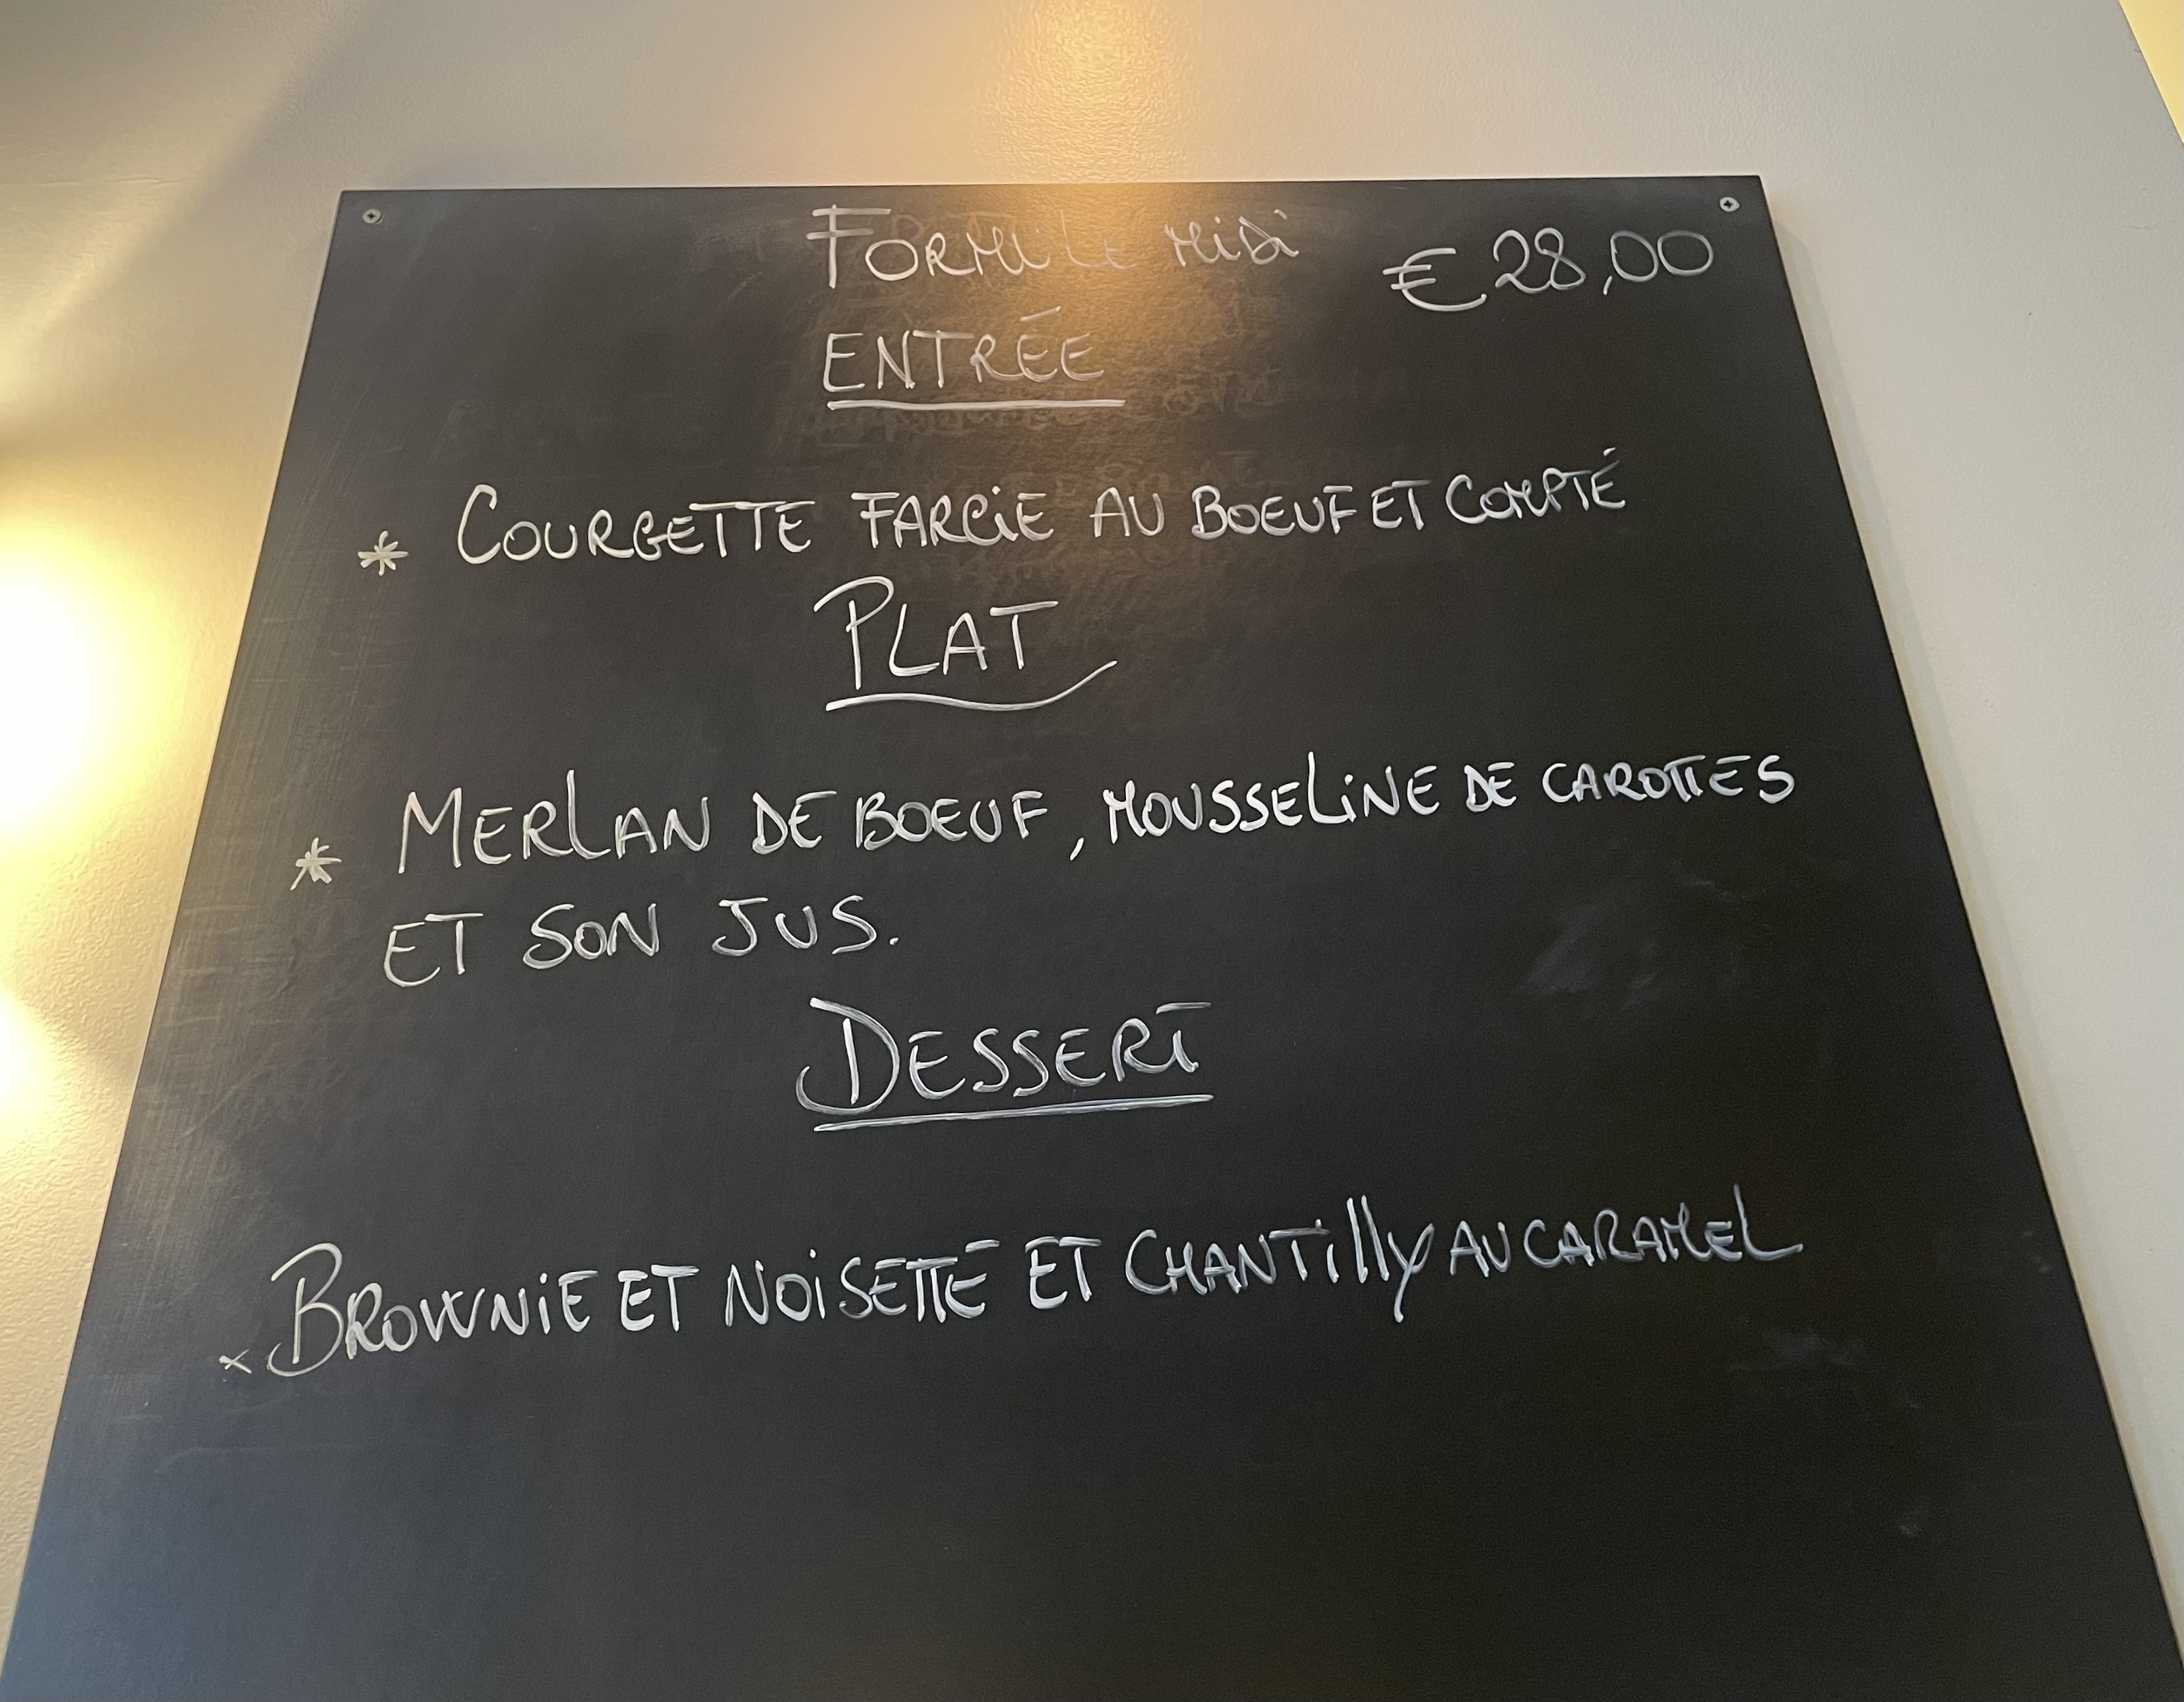 FORMULE MiDi € 28,00
ENTRÉE
* COURGETTE FARCiE AU BOEUF ET COMPTÉ
PLAT
* MERLAN DE BOEUF, MOUSSELiNE DE CAROTTES
ET SON JUS.
DESSERT
x BROWNiE ET NOiSETTE ET CHANTilly AU CARAMEL